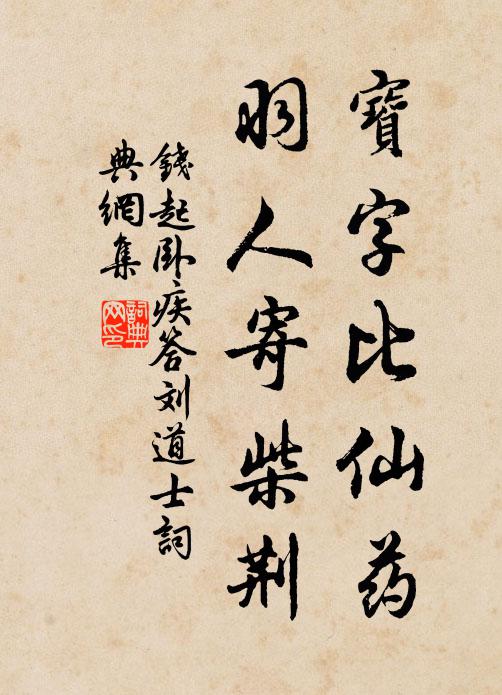 寶字比仙药
羽人寄柴荆
錢起卧疾答刘道士詞
典網集
詞典
网印